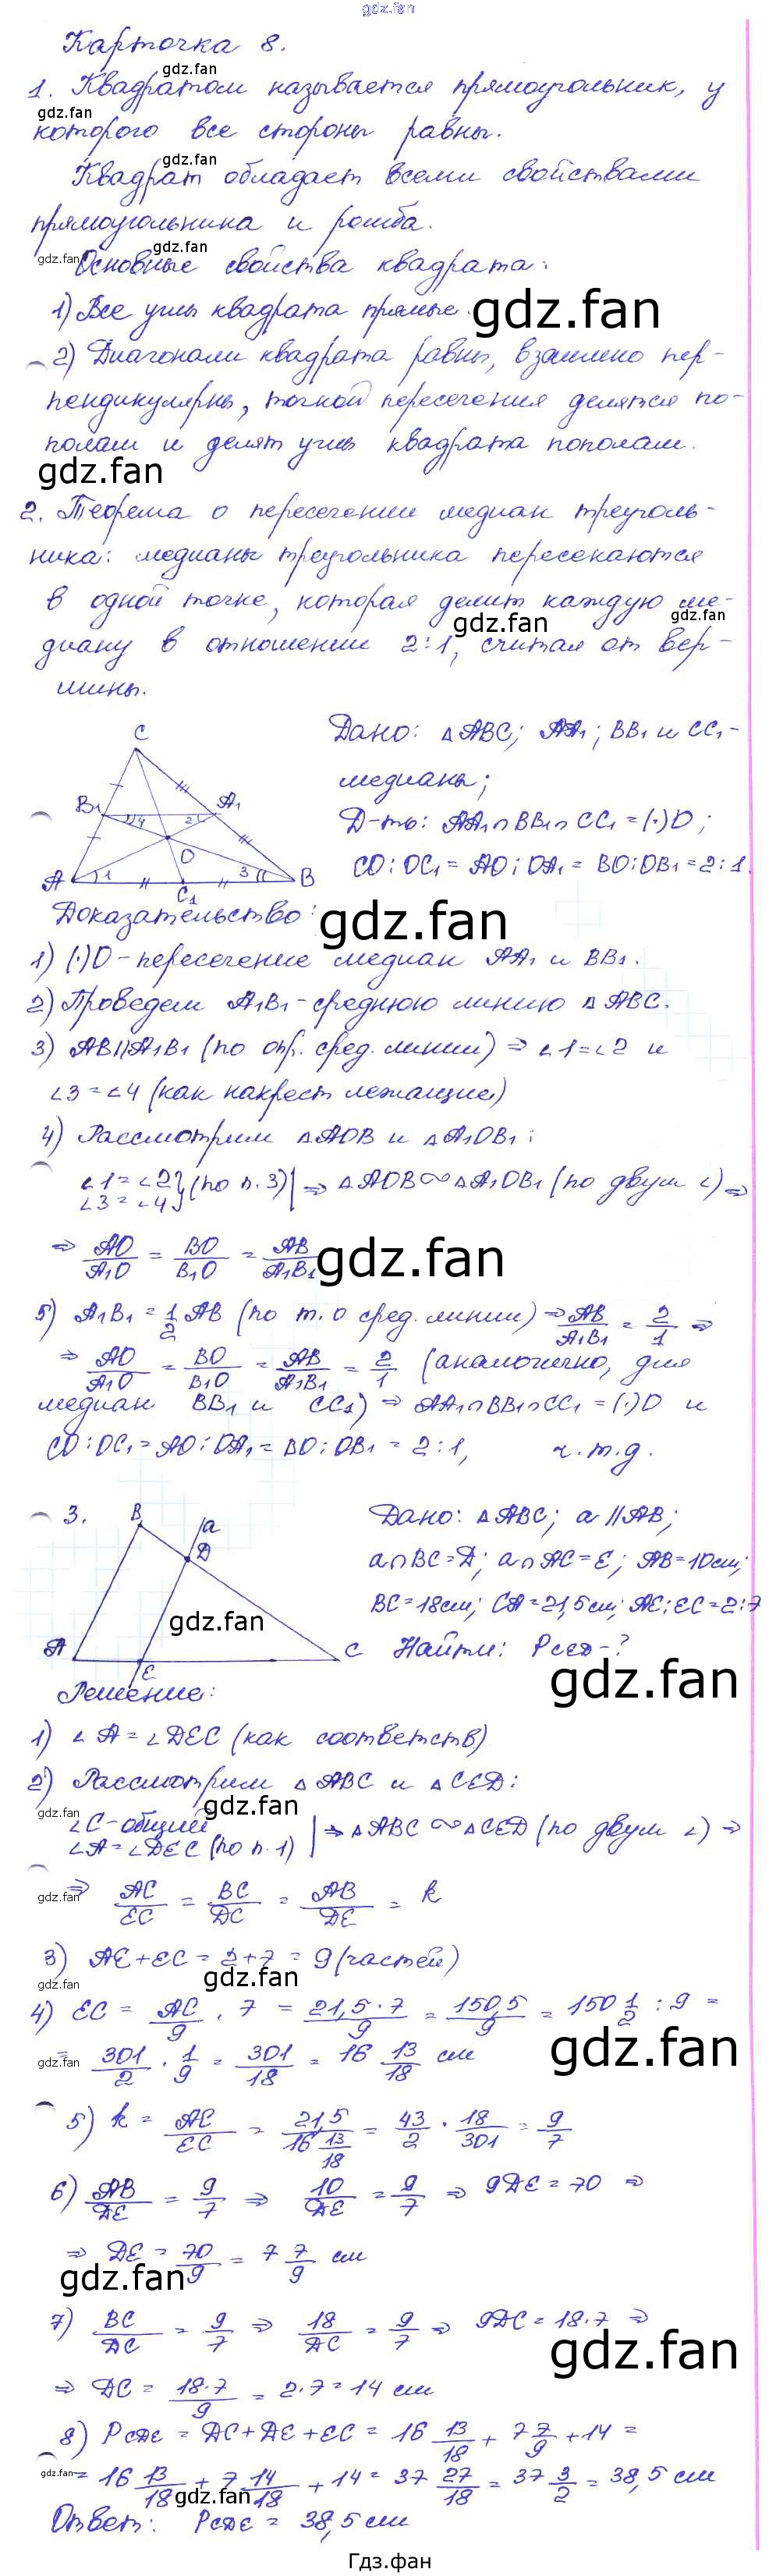 gdz.fan
Карточка 8.
gdz.fan
1. Квадратом называется прямоугольник, у
gdz.fan
которого все стороны равны.
gdz.fan
Квадрат обладает всеми свойствами
прямоугольника и ромба.
gdz.fan
gdz.fan
Основные свойства квадрата:
1) Все углы квадрата прямые.
gdz.fan
2) Диагонали квадрата равны, взаимно пер-
пендикулярны, точкой пересечения делятся по-
полам и делят углы квадрата пополам.
gdz.fan
2. Теорема о пересечении медиан треуголь-
ника: медианы треугольника пересекаются
в одной точке, которая делит каждую ме-
gdz.fan
gdz.fan
диану в отношении 2:1, считая от вер-
шины.
C
B₁
A₁
4
2
O
1
3
A
C₁
B
Дано: △ABC; AA₁; BB₁ и CC₁-
медианы;
Д-ть: AA₁∩BB₁∩CC₁=(·)O;
CO:OC₁=AO:OA₁=BO:OB₁=2:1.
Доказательство:
gdz.fan
1) (·)O-пересечение медиан AA₁ и BB₁.
2) Проведем A₁B₁-среднюю линию △ABC.
3) AB||A₁B₁ (по опр. сред. линии) ⇒ ∠1=∠2 и
∠3=∠4 (как накрест лежащие)
4) Рассмотрим △AOB и △A₁OB₁:
∠1=∠2
∠3=∠4} (по п.3)| ⇒ △AOB∾△A₁OB₁ (по двум ∠) ⇒
⇒ AO/A₁O = BO/B₁O = AB/A₁B₁
gdz.fan
5) A₁B₁=1/2 AB (по т. о сред. линии) ⇒ AB/A₁B₁ = 2/1 ⇒
⇒ AO/A₁O = BO/B₁O = AB/A₁B₁ = 2/1 (аналогично, для
медиан BB₁ и CC₁) ⇒ AA₁∩BB₁∩CC₁=(·)O и
CO:OC₁=AO:OA₁=BO:OB₁=2:1, ч.т.д.
3.
B
a
D
gdz.fan
A
E
C
Дано: △ABC; a||AB;
a∩BC=D; a∩AC=E; AB=10см;
BC=18см; CA=21,5см; AE:EC=2:7
Найти: PCED-?
gdz.fan
Решение:
1) ∠A=∠DEC (как соответств)
2) Рассмотрим △ABC и △CED:
gdz.fan
gdz.fan
∠C-общий
∠A=∠DEC (по п.1) | ⇒ △ABC∾△CED (по двум ∠) ⇒
gdz.fan
⇒ AC/EC = BC/DC = AB/DE = k
3) AE+EC=2+7=9 (частей)
gdz.fan
gdz.fan
4) EC = AC/9 · 7 = 21,5·7/9 = 150,5/9 = 150 1/2 : 9 =
gdz.fan
gdz.fan
= 301/2 · 1/9 = 301/18 = 16 13/18 см
5) k = AC/EC = 21,5/16 13/18 = 43/2 · 18/301 = 9/7
6) AB/DE = 9/7 ⇒ 10/DE = 9/7 ⇒ 9DE=70 ⇒
⇒ DE = 70/9 = 7 7/9 см
gdz.fan
7) BC/DC = 9/7 ⇒ 18/DC = 9/7 ⇒ 9DC=18·7 ⇒
gdz.fan
⇒ DC = 18·7/9 = 2·7=14 см
8) PCDE = DC+DE+EC = 16 13/18 + 7 7/9 + 14 =
gdz.fan
= 16 13/18 + 7 14/18 + 14 = 37 27/18 = 37 3/2 = 38,5 см
gdz.fan
Ответ: PCDE = 38,5 см
Гдз.фан